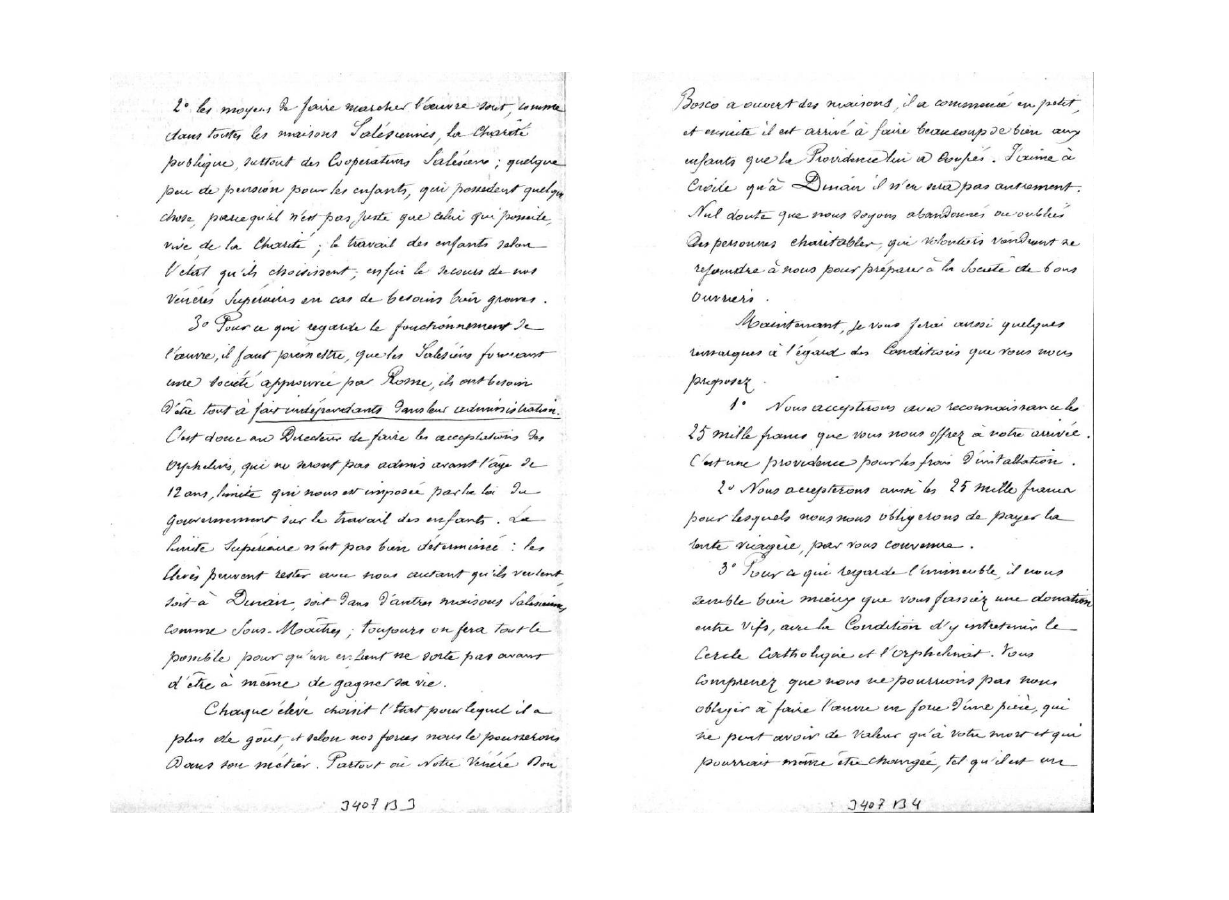 2° les moyens de faire marcher l'œuvre sont, comme
dans toutes les maisons Salésiennes, la Charité
publique, surtout des Coopérateurs Salésiens ; quelque
peu de pension pour les enfants, qui possèdent quelque
chose, parcequ'il n'est pas juste que celui qui possède,
vive de la Charité ; le travail des enfants selon
l'état qu'ils choisissent ; enfin le secours de nos
vénérés Supérieurs en cas de besoins bien graves.
3° Pour ce qui regarde le fonctionnement de
l'œuvre, il faut premettre, que les Salésiens formant
une société approuvée par Rome, ils ont besoin
d'être tout à fait indépendants dans leur administration.
C'est donc au Directeur de faire les acceptations des
Orphelins, qui ne seront pas admis avant l'âge de
12 ans, limite qui nous est imposée par la loi du
gouvernement sur le travail des enfants. La
limite Supérieure n'est pas bien déterminée : les
élèves peuvent rester avec nous autant qu'ils veulent,
soit à Dinan, soit dans d'autres maisons Salésiennes,
comme Sous-Maîtres ; toujours on fera tout le
possible pour qu'un enfant ne sorte pas avant
d'être à même de gagner sa vie.
Chaque élève choisit l'état pour lequel il a
plus de goût, et selon nos forces nous le pousserons
dans son métier. Partout où Notre Vénéré Don
3407 B 3
Bosco a ouvert des maisons, il a commencé en petit,
et ensuite il est arrivé à faire beaucoup de bien aux
enfants que la Providence lui a confiés. J'aime à
croire qu'à Dinan il n'en sera pas autrement.
Nul doute que nous soyons abandonnés ou oubliés
des personnes charitables, qui volontiers viendront se
rejoindre à nous pour préparer à la Société de bons
ouvriers.
Maintenant, je vous ferai aussi quelques
remarques à l'égard des Conditions que vous nous
proposez.
1° Nous accepterons avec reconnaissance les
25 mille francs que vous nous offrez à notre arrivée.
C'est une providence pour les frais d'installation.
2° Nous accepterons aussi les 25 mille francs
pour lesquels nous nous obligerons de payer la
rente viagère, par vous convenue.
3° Pour ce qui regarde l'immeuble, il nous
semble bien mieux que vous fassiez une donation
entre vifs, avec la Condition d'y entretenir le
Cercle Catholique et l'Orphelinat. Vous
comprenez que nous ne pourrions pas nous
obliger à faire l'œuvre en face d'une pièce, qui
ne peut avoir de valeur qu'à votre mort et qui
pourrait même être changée, tel qu'il est un
3407 B 4